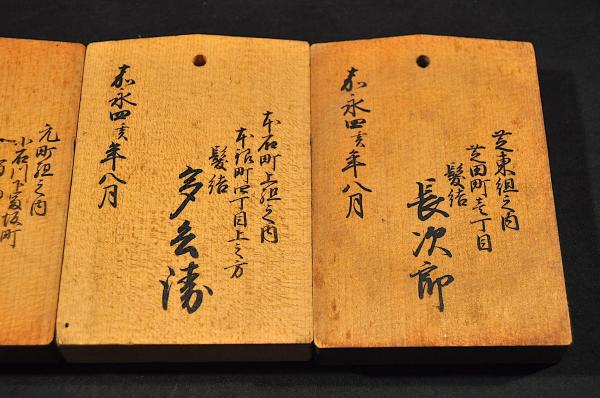 芝東組之内
芝田町壱丁目
髪結
長次郎
嘉永四亥年八月
本石町上組之内
本銀町四丁目上之方
髪結
嘉永四亥年八月
元町組之内
小石川下冨坂町